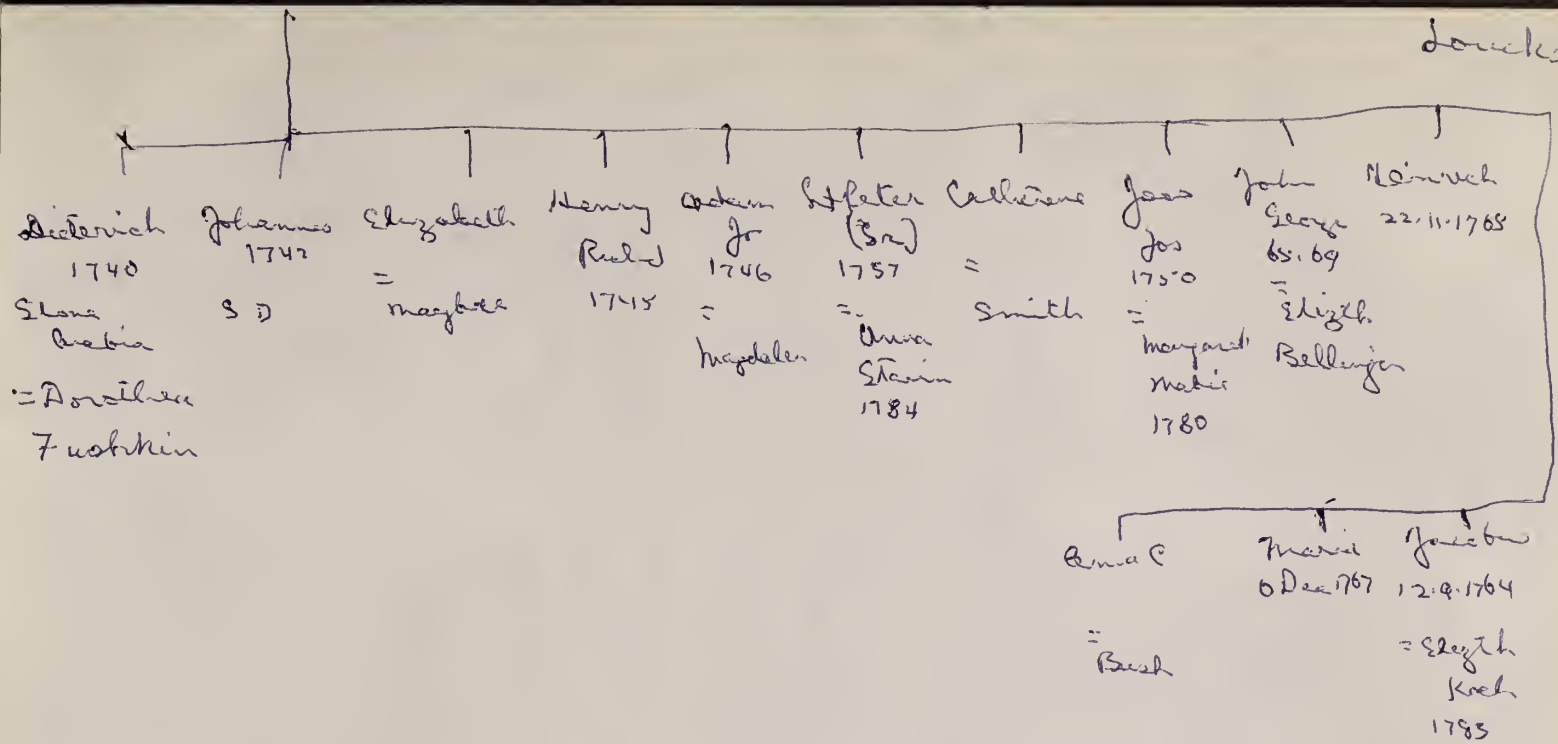 Loucks
Dieterich
1740
Stone
Arabia
= Dorothea
Johannes
1742
S D
Elizabeth
=
Henry
1745
Adam
Jr
1746
=
Magdalen
Peter
(Sr)
1757
=
Anna
Starin
1784
Catherine
=
Smith
Joos
Jos
1750
=
Margaret
1780
John
George
65.69
=
Elizth
Bellinger
Heinrich
22.11.1765
Anna C
=
Bush
Maria
6 Dec 1767
Jacob
12.9.1764
= Elizth
1783